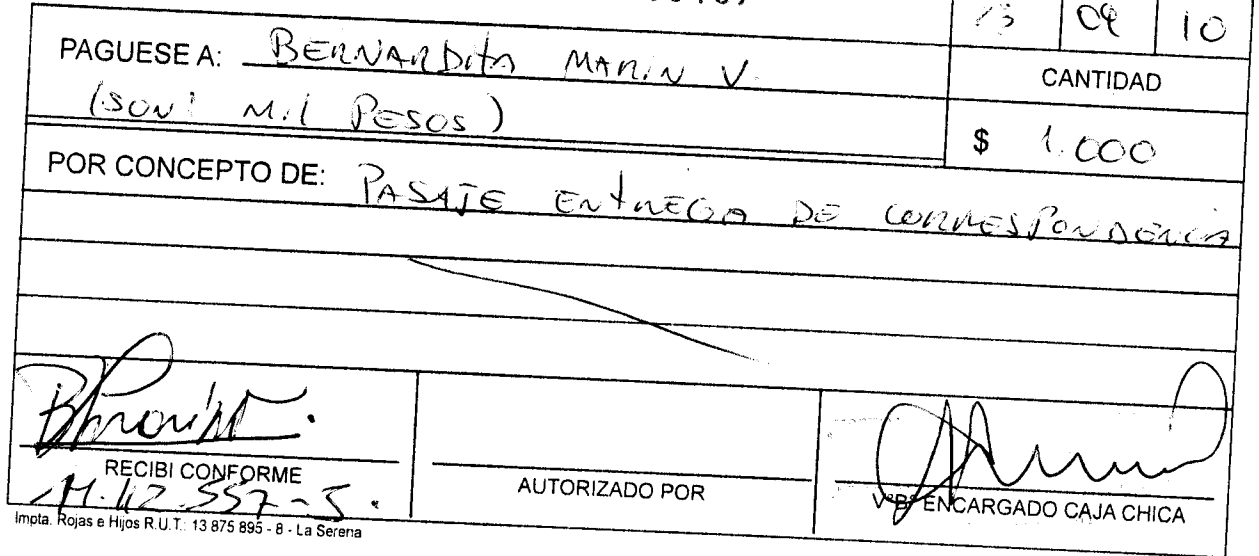 13 09 10
PAGUESE A: BERNARDITA MARIN V.
CANTIDAD
(SON: MIL PESOS)
$ 1.000
POR CONCEPTO DE: PASAJE ENTREGA DE CORRESPONDENCIA
RECIBI CONFORME
AUTORIZADO POR
V°B° ENCARGADO CAJA CHICA
Impta. Rojas e Hijos R.U.T.: 13 875 895 - 8 - La Serena